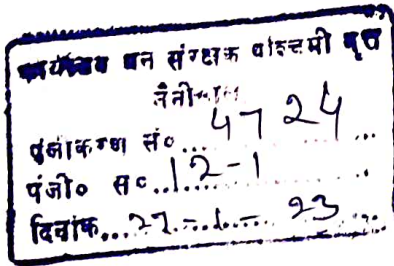 कार्यालय वन संरक्षक पश्चिमी वृत्त
नैनीताल
पूजीकरण सं० 4724
पंजी० स० 12-1
दिनांक 27-1-23